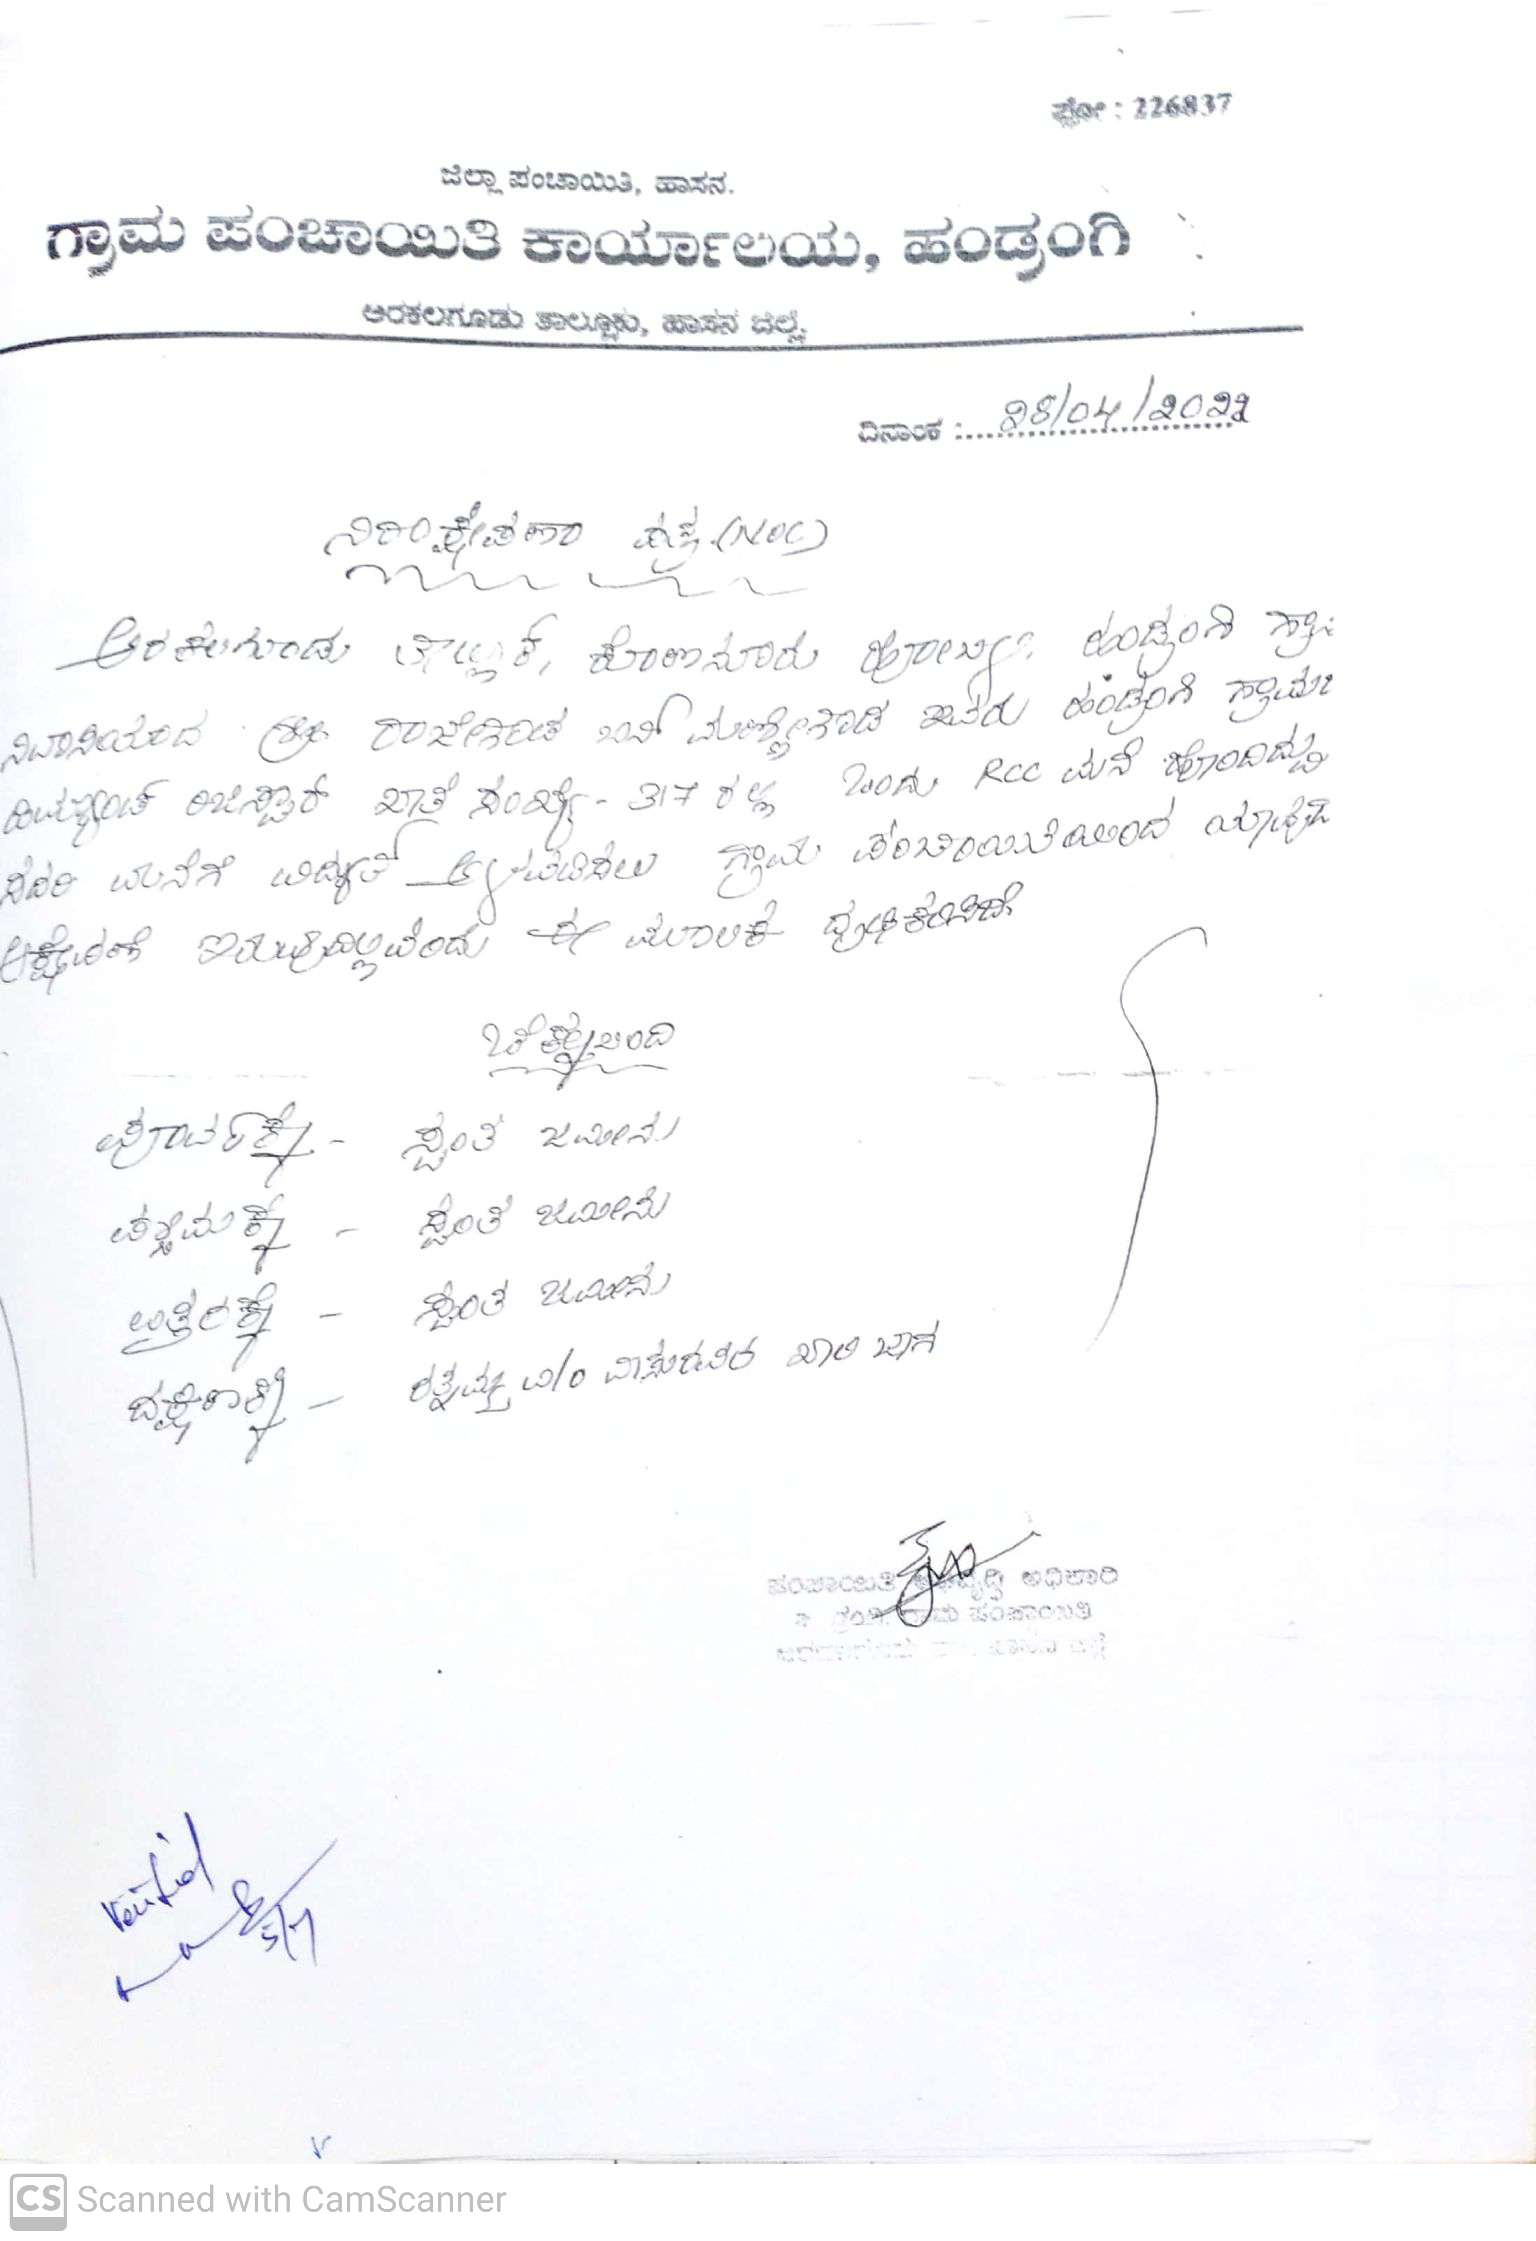 ಫೋ : 226837
ಜಿಲ್ಲಾ ಪಂಚಾಯಿತಿ, ಹಾಸನ.
ಗ್ರಾಮ ಪಂಚಾಯಿತಿ ಕಾರ್ಯಾಲಯ, ಹಂಡ್ರಂಗಿ
ಅರಕಲಗೂಡು ತಾಲ್ಲೂಕು, ಹಾಸನ ಜಿಲ್ಲೆ.
ದಿನಾಂಕ : ೨8/04/೨0೨೨
ನಿರಾಕ್ಷೇಪಣಾ ಪತ್ರ (NOC)
ಅರಕಲಗೂಡು ತಾಲ್ಲೂಕ್, ಕೊಣನೂರು ಹೋಬಳಿ, ಹಂಡ್ರಂಗಿ ಗ್ರಾಮ
ನಿವಾಸಿಯಾದ ಶ್ರೀ ರಾಜೇಗೌಡ ಬಿನ್ ಇವರು ಹಂಡ್ರಂಗಿ ಗ್ರಾಮ
ಡಿಮ್ಯಾಂಡ್ ರಿಜಿಸ್ಟಾರ್ ಖಾತೆ ಸಂಖ್ಯೆ- 317 ರಲ್ಲಿ ಒಂದು RCC ಮನೆ ಹೊಂದಿದ್ದು
ಸದರಿ ಮನೆಗೆ ವಿದ್ಯುತ್ ಗ್ರಾಮ ಪಂಚಾಯಿತಿಯಿಂದ ಯಾವುದೇ
ಆಕ್ಷೇಪಣೆ ಇರುವುದಿಲ್ಲವೆಂದು ಈ ಮೂಲಕ ದೃಢೀಕರಿಸಿದೆ
ಚೆಕ್ಕುಬಂದಿ
ಪೂರ್ವಕ್ಕೆ - ಸ್ವಂತ ಜಮೀನು
ಪಶ್ಚಿಮಕ್ಕೆ - ಸ್ವಂತ ಜಮೀನು
ಉತ್ತರಕ್ಕೆ - ಸ್ವಂತ ಜಮೀನು
ದಕ್ಷಿಣಕ್ಕೆ - ರತ್ನಮ್ಮ w/o ಖಾಲಿ ಜಾಗ
ಪಂಚಾಯಿತಿ ಅಭಿವೃದ್ಧಿ ಅಧಿಕಾರಿ
ಗ್ರಾಮ ಪಂಚಾಯಿತಿ
Verified
5/7
CS Scanned with CamScanner